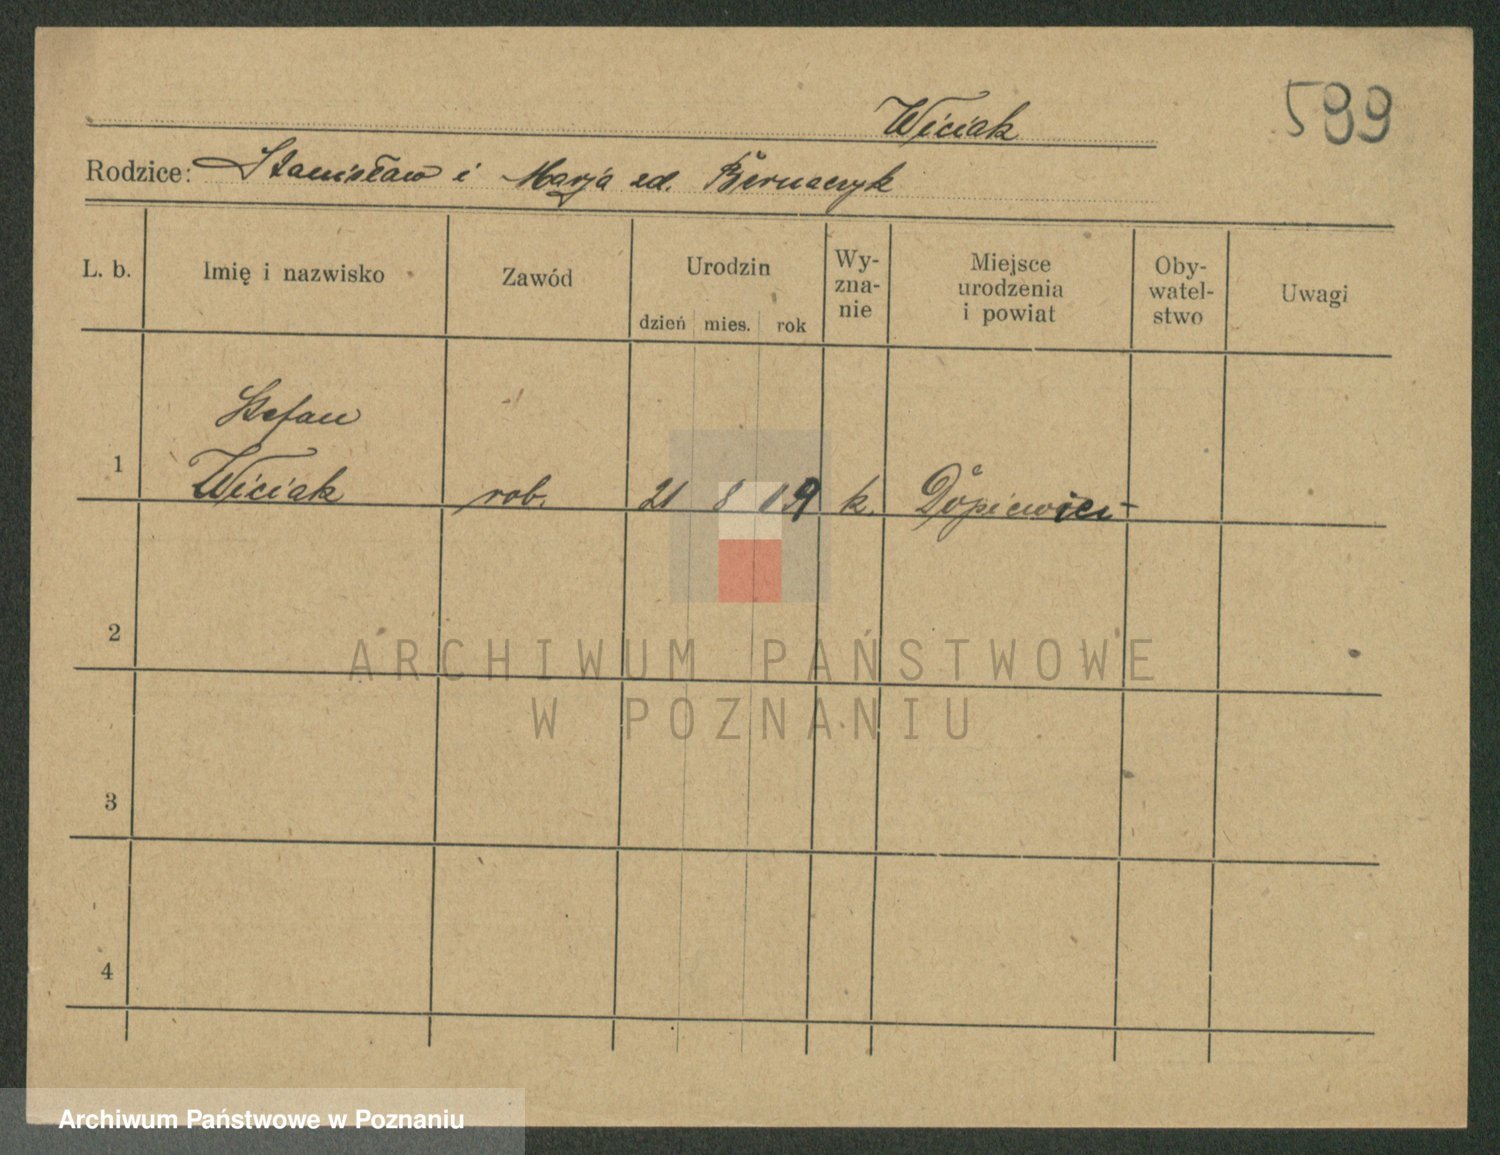 Wiciak
599
Rodzice: Stanisław i Marja zd. Biernaczyk
L. b.
Imię i nazwisko
Zawód
Urodzin
dzień mies. rok
Wy-
zna-
nie
Miejsce
urodzenia
i powiat
Oby-
watel-
stwo
Uwagi
Stefan
1 Wiciak rob. 21 8 19 k.
2
3
4
ARCHIWUM PAŃSTWOWE
W POZNANIU
Archiwum Państwowe w Poznaniu